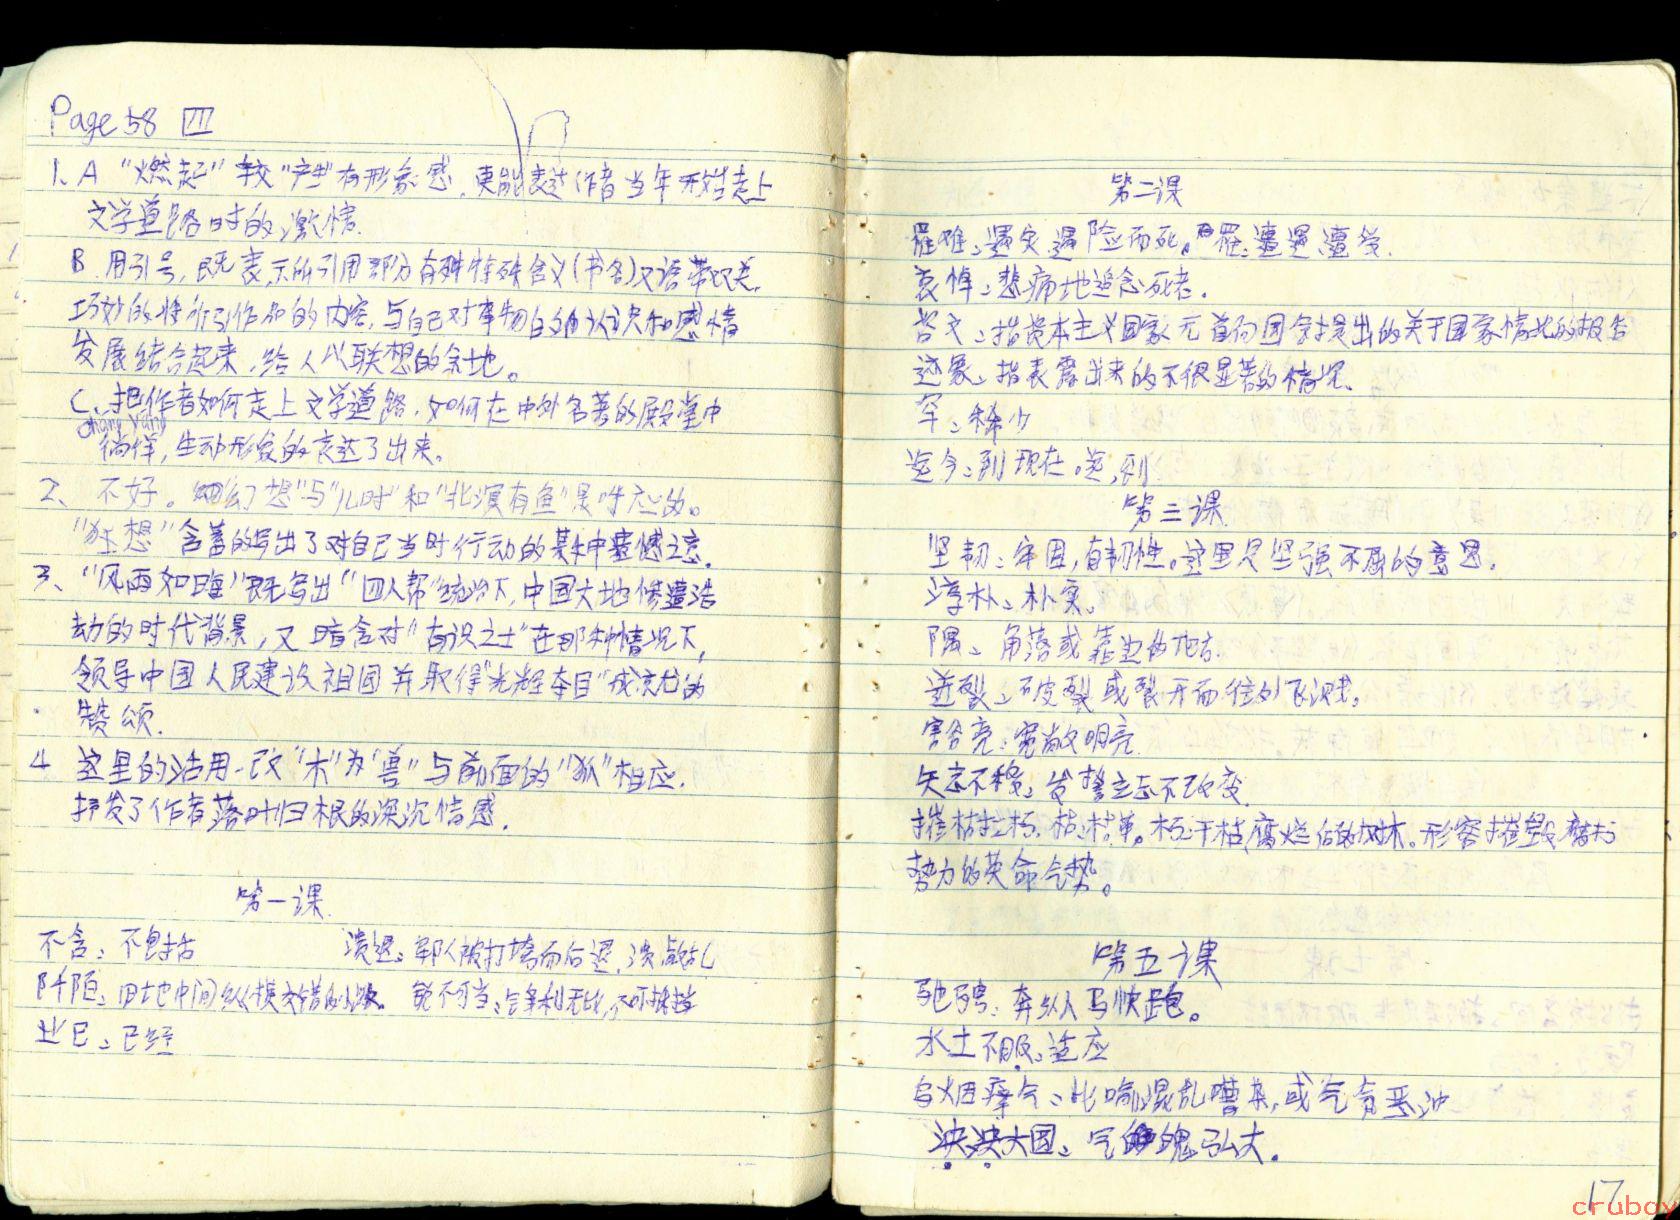 Page 58 四
1、A "燃起"较"产生"有形象感,更能表达作者当年开始走上
文学道路时的激情.
B.用引号,既表示所引用部分有特殊含义(书名)又语带双关,
巧妙的将所引作品的内容,与自己对事物的认识和感情
发展结合起来,给人以联想的余地。
C、把作者如何走上文学道路,如何在中外名著的殿堂中
chang yang
徜徉,生动形象的表达了出来。
2、不好。"幻想"与"儿时"和"北溟有鱼"是呼应的。
"狂想"含蓄的写出了对自己当时行动的某种遗憾之意.
3、"风雨如晦"既写出"四人帮"统治下,中国大地惨遭浩
劫的时代背景,又暗含对"有识之士"在那种情况下,
领导中国人民建设祖国并取得"光辉夺目"成就的
赞颂.
4 这里的活用-改"木"为"兽"与前面的"狐"相应.
抒发了作者落叶归根的深沉情感.
第一课
不含:不包括 溃退:军队被打垮而后退,溃:散乱
阡陌:田地中间纵横交错的小路. 锐不可当:锋利无比,不可抵挡
业已:已经
第二课
罹难:遇灾、遇险而死。罹:遭遇,遭受.
哀悼:悲痛地追念死者.
咨文:指资本主义国家元首向国会提出的关于国家情况的报告
迹象:指表露出来的不很显著的情况.
罕:稀少
迄今:到现在。迄,到
第三课
坚韧:牢固,有韧性。这里是坚强不屈的意思.
淳朴:朴实.
隅:角落或靠边的地方.
迸裂:破裂或裂开而往外飞溅.
豁亮:宽敞明亮
矢志不移:发誓立志不改变.
摧枯拉朽.枯:枯草。朽:干枯腐烂的树木。形容摧毁腐朽
势力的革命气势。
第五课
驰骋:奔纵马快跑。
水土不服:适应
乌烟瘴气:比喻混乱嘈杂,或气育恶浊
泱泱大国:气魄弘大.
17
cruboy